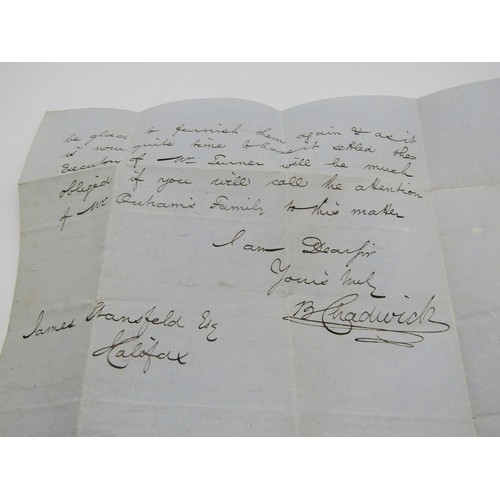 be glad to furnish them again & as it
is now quite time to have it settled the
Executor of Mr Turner will be much
obliged if you will call the attention
of Mr Family to this matter
I am Dear Sir
Yours truly
B Chadwick
James Stansfeld Esq
Halifax